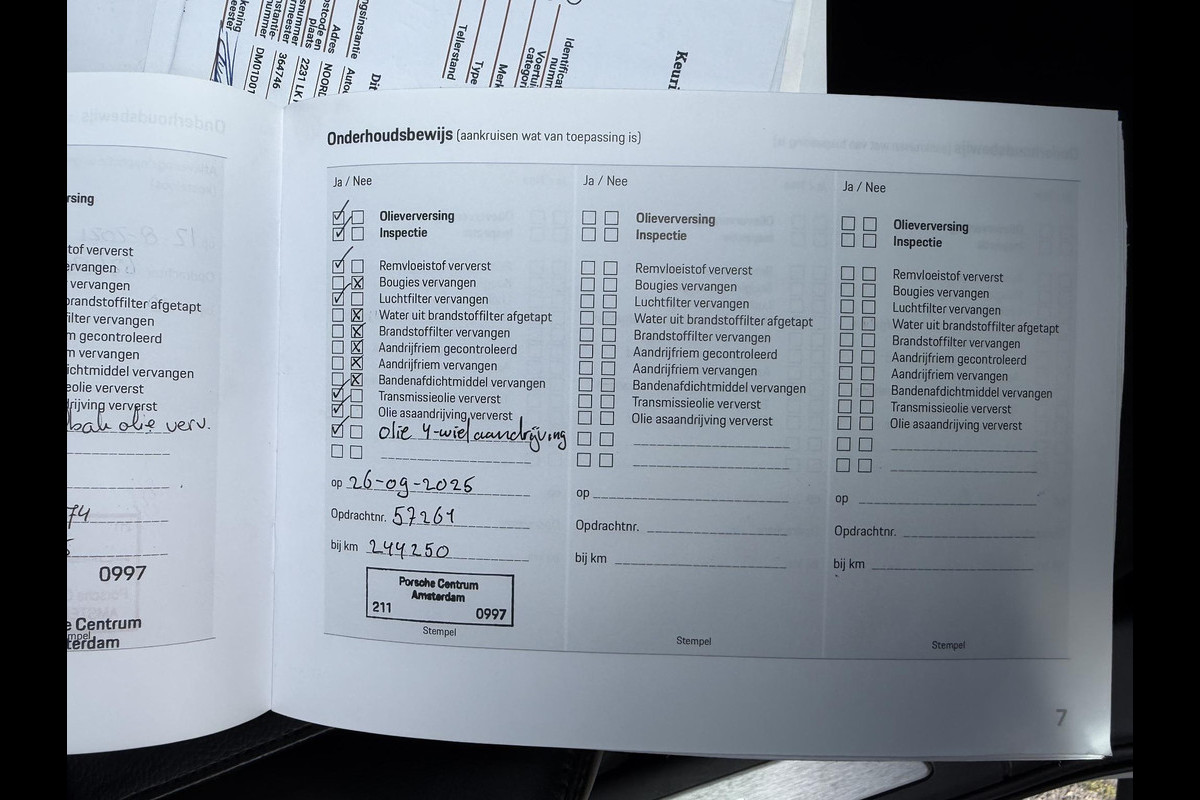 Keuri
Identificat
numm
Voertui
categori
Merk
Type
Tellerstand
Dit
gsinstantie Auto
Adres NOORD
stcode en
plaats 2231 LK
snummer
rmeester 364746
nstantie
nummer DM01D01
kening
eester
rsing
tof ververst
ervangen
vervangen
brandstoffilter afgetapt
filter vervangen
m gecontroleerd
m vervangen
ichtmiddel vervangen
eolie ververst
drijving ververst
bak olie verv.
74
0997
e Centrum
mpel
terdam
Onderhoudsbewijs (aankruisen wat van toepassing is)
Ja / Nee
Olieverversing
Inspectie
Remvloeistof ververst
Bougies vervangen
Luchtfilter vervangen
Water uit brandstoffilter afgetapt
Brandstoffilter vervangen
Aandrijfriem gecontroleerd
Aandrijfriem vervangen
Bandenafdichtmiddel vervangen
Transmissieolie ververst
Olie asaandrijving ververst
olie 4-wielaandrijving
op 26-09-2025
Opdrachtnr. 57261
bij km 244250
Porsche Centrum
Amsterdam
211 0997
Stempel
Ja / Nee
Olieverversing
Inspectie
Remvloeistof ververst
Bougies vervangen
Luchtfilter vervangen
Water uit brandstoffilter afgetapt
Brandstoffilter vervangen
Aandrijfriem gecontroleerd
Aandrijfriem vervangen
Bandenafdichtmiddel vervangen
Transmissieolie ververst
Olie asaandrijving ververst
op
Opdrachtnr.
bij km
Stempel
Ja / Nee
Olieverversing
Inspectie
Remvloeistof ververst
Bougies vervangen
Luchtfilter vervangen
Water uit brandstoffilter afgetapt
Brandstoffilter vervangen
Aandrijfriem gecontroleerd
Aandrijfriem vervangen
Bandenafdichtmiddel vervangen
Transmissieolie ververst
Olie asaandrijving ververst
op
Opdrachtnr.
bij km
Stempel
7